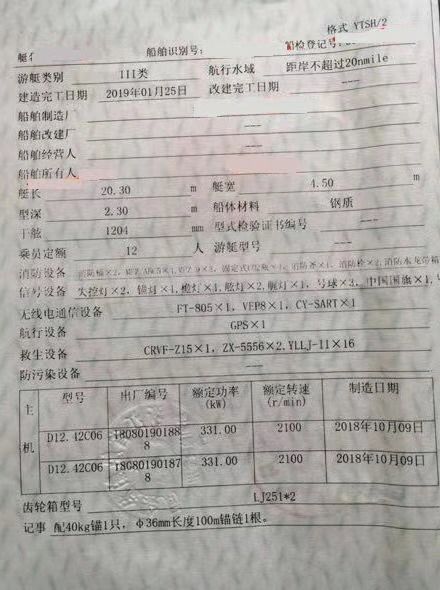 格式 YTSH/2
船舶识别号: 船检登记号:
游艇类别 III类 航行水域 距岸不超过20nmile
建造完工日期 2019年01月25日 改建完工日期 ---
船舶制造厂
船舶改建厂 ---
船舶经营人 ---
船舶所有人
艇长 20.30 m 艇宽 4.50 m
型深 2.30 m 船体材料 钢质
干舷 1204 mm 型式检验证书编号 ---
乘员定额 12 人 游艇型号 ---
消防设备
信号设备 失控灯×2, 锚灯×1, 桅灯×1, 舷灯×2, 艉灯×1, 号球×3, 中国国旗×1,
无线电通信设备 FT-805×1, VEP8×1, CY-SART×1
航行设备 GPS×1
救生设备 CRVF-Z15×1, ZX-5556×2, YLLJ-II×16
防污染设备 ---
主机 型号 出厂编号 额定功率 (kW) 额定转速 (r/min) 制造日期
D12.42C06 180801901888 331.00 2100 2018年10月09日
D12.42C06 180801901878 331.00 2100 2018年10月09日
齿轮箱型号 LJ251*2
记事 配40kg锚1只，φ36mm长度100m锚链1根。